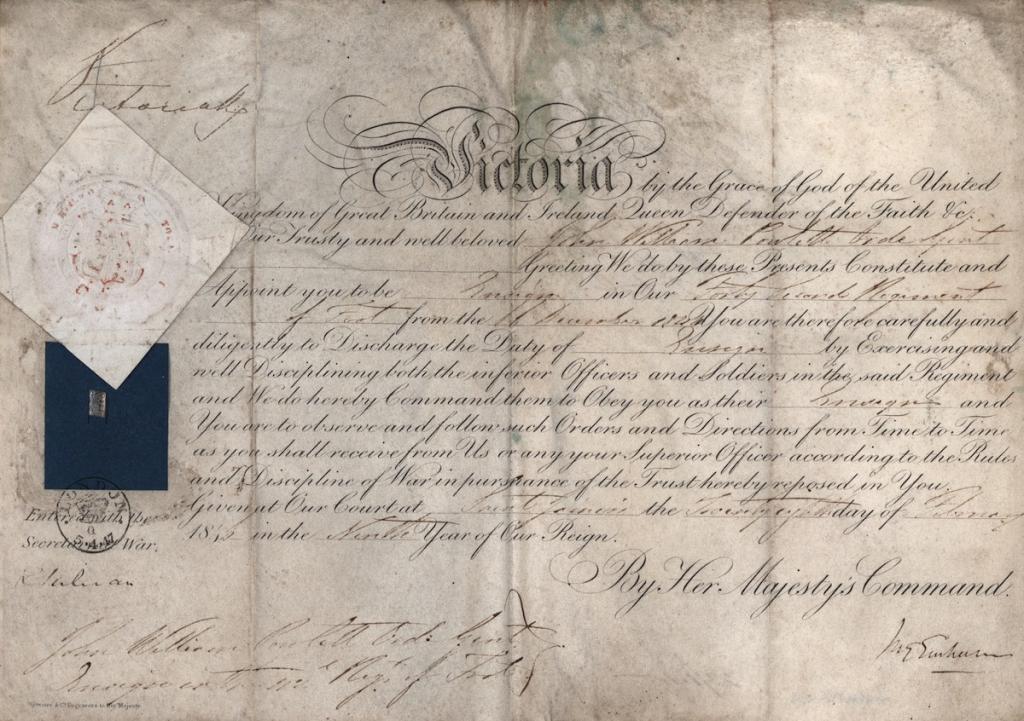 Victoria R
Victoria by the Grace of God of the United
Kingdom of Great Britain and Ireland, Queen Defender of the Faith &c.
Our Trusty and well beloved John William Poulett Orde Gent
Greeting We do by these Presents Constitute and
Appoint you to be Ensign in Our Forty Second Regiment
of Foot from the December You are therefore carefully and
diligently to Discharge the Duty of Ensign by Exercising and
well Disciplining both the inferior Officers and Soldiers in the said Regiment
and We do hereby Command them to Obey you as their Ensign and
You are to observe and follow such Orders and Directions from Time to Time
as you shall receive from Us or any your Superior Officer according to the Rules
and Discipline of War in pursuance of the Trust hereby reposed in You.
Given at Our Court at Saint James's the day of February
in the Ninth Year of Our Reign.
By Her Majesty's Command.
LONDON
Entered with the
Secretary War.
John William Poulett Orde Gent
Ensign in the 42d Regt of Foot
& Co. Engravers to Her Majesty